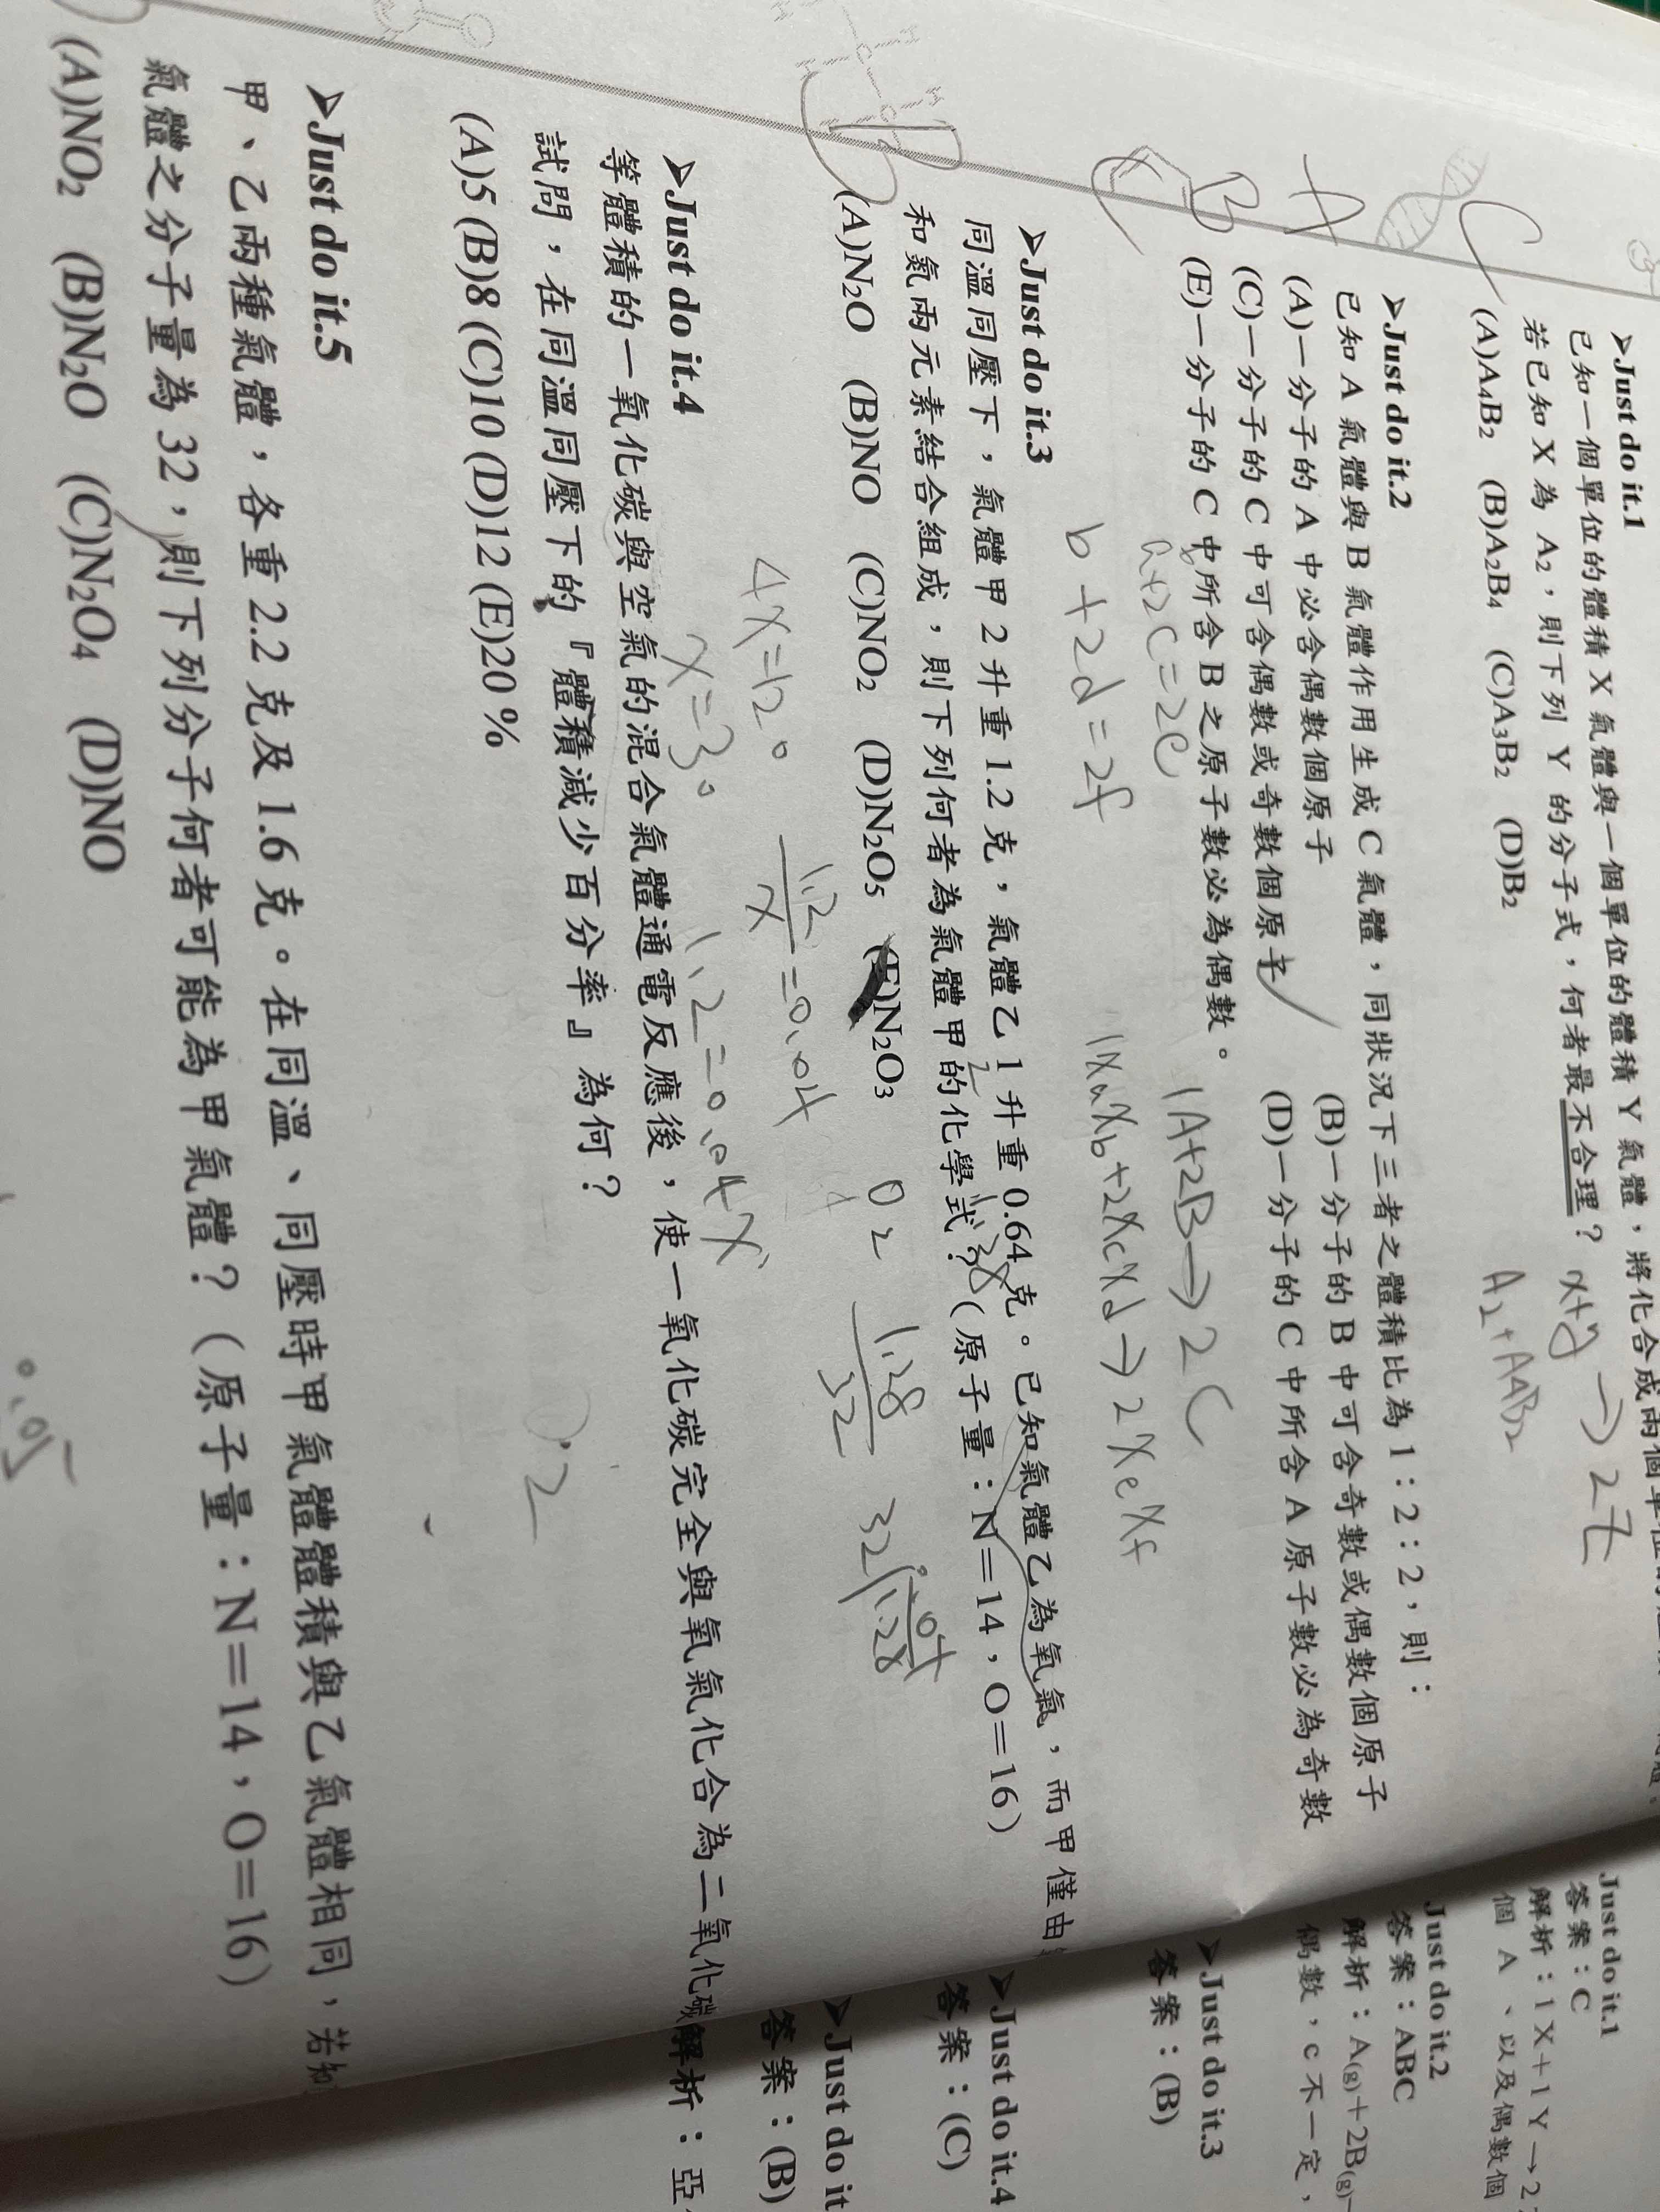 ➤Just do it.1
已知一個單位的體積 X 氣體與一個單位的體積 Y 氣體，將化合成兩個單位的
若已知 X 為 A₂，則下列 Y 的分子式，何者最不合理？
(A)A₄B₂ (B)A₂B₄ (C)A₃B₂ (D)B₂
C
x+y → 2z
A₂+A₄B₂
➤Just do it.2
已知 A 氣體與 B 氣體作用生成 C 氣體，同狀況下三者之體積比為 1：2：2，則：
(A)一分子的 A 中必含偶數個原子 (B)一分子的 B 中可含奇數或偶數個原子
(C)一分子的 C 中可含偶數或奇數個原子 (D)一分子的 C 中所含 A 原子數必為奇數
(E)一分子的 C 中所含 B 之原子數必為偶數。
A
B
C
1A+2B→2C
1XaXb+2XcXd→2XeXf
a+2c=2e
b+2d=2f
➤Just do it.3
同溫同壓下，氣體甲 2 升重 1.2 克，氣體乙 1 升重 0.64 克。已知氣體乙為氧氣，而甲僅由
和氮兩元素結合組成，則下列何者為氣體甲的化學式？（原子量：N＝14，O＝16）
(A)N₂O (B)NO (C)NO₂ (D)N₂O₅ (E)N₂O₃
B
2
1.28
O₂
1.28
32
32
0.04
1.28
1.2
x
=0.04
1.2=0.04x
4x=120
x=30
➤Just do it.4
等體積的一氧化碳與空氣的混合氣體通電反應後，使一氧化碳完全與氧氣化合為二氧化碳
試問，在同溫同壓下的『體積減少百分率』為何？
(A)5 (B)8 (C)10 (D)12 (E)20 %
0.2
➤Just do it.5
甲、乙兩種氣體，各重 2.2 克及 1.6 克。在同溫、同壓時甲氣體體積與乙氣體相同，若知
氣體之分子量為 32，則下列分子何者可能為甲氣體？（原子量：N＝14，O＝16）
(A)NO₂ (B)N₂O (C)N₂O₄ (D)NO
0.05
Just do it.1
答案：C
解析：1X＋1Y→2
個 A 、以及偶數個
Just do it.2
答案：ABC
解析：A(g)＋2B(g)
偶數，c 不一定，
➤Just do it.3
答案：(B)
➤Just do it.4
答案：(C)
➤Just do it
答案：(B)
解析：亞